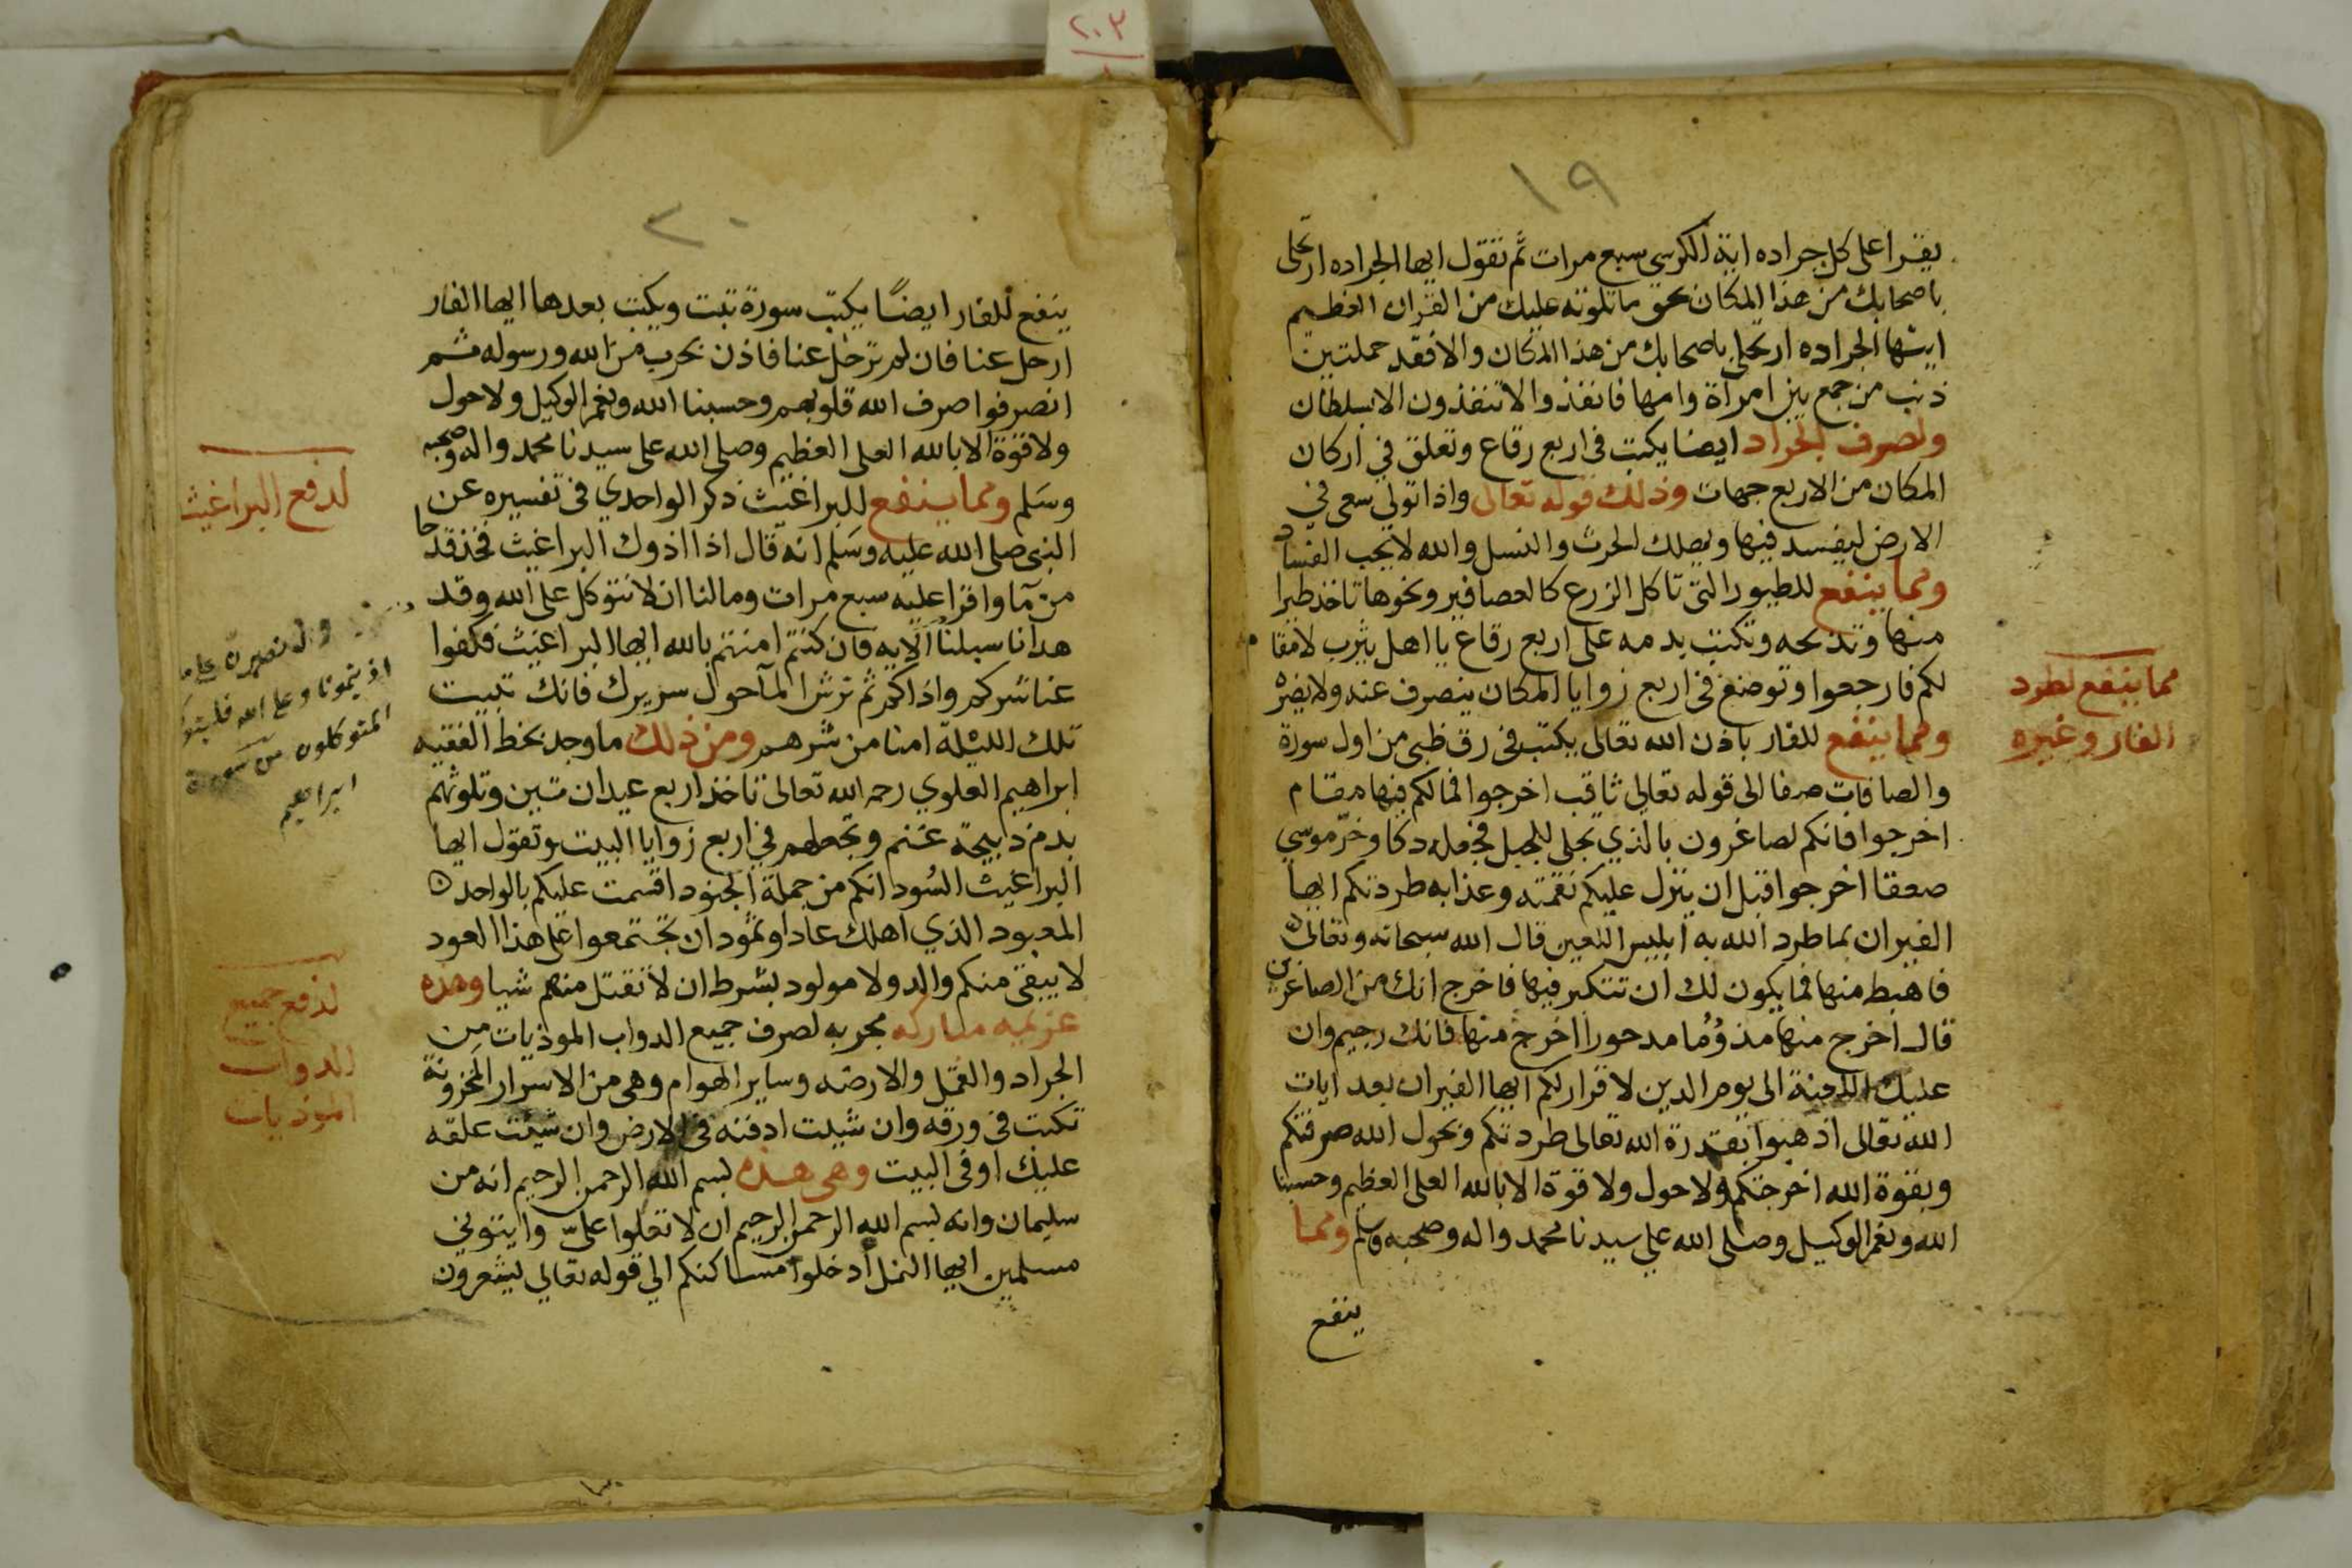 ١٩
يقرا على كل جراده اية الكرسي سبع مرات ثم تقول ايها الجراده ارتحلى
باصحابك من هذا المكان بحق ما تلوته عليك من القران العظيم
ايتها الجراده ارتحلى باصحابك من هذا المكان والا فقد حملتين
ذنب من جمع بين امرأة وامها فانفذوا لا تنفذون الا بسلطان
ولصرف الجراد ايضا يكتب فى اربع رقاع وتعلق في اركان
المكان من الاربع جهات وذلك قوله تعالى واذا تولي سعى في
الارض ليفسد فيها ويهلك الحرث والنسل والله لا يحب الفساد
ومما ينفع للطيور التى تاكل الزرع كالعصافير ونحوها تاخذ طيرا
منها وتذبحه وتكتب بدمه على اربع رقاع يا اهل يثرب لا مقام
لكم فارجعوا وتوضع فى اربع زوايا المكان ينصرف عنه ولا يضره
ومما ينفع للفار باذن الله تعالى يكتب فى رق ظبى من اول سورة
والصافات صفا الى قوله تعالي ثاقب اخرجوا فما لكم فيها مقام
اخرجوا فانكم لصاغرون بالذي تجلى للجبل فجعله دكا وخرّ موسي
صعقا اخرجوا قبل ان ينزل عليكم نقمته وعذابه طردتكم ايها
الفيران بما طرد الله به ابليس اللعين قال الله سبحانه وتعالى
فاهبط منها فما يكون لك ان تتكبر فيها فاخرج انك من الصاغرين
قال اخرج منها مذؤما مدحورا اخرج منها فانك رجيم وان
عليك اللعنة الى يوم الدين لا قرار لكم ايها الفيران بعد ايات
الله تعالى اذهبوا بقدرة الله تعالى طردتكم وبحول الله صرفتكم
وبقوة الله اخرجتكم ولا حول ولا قوة الا بالله العلى العظيم وحسبنا
الله ونعم الوكيل وصلى الله علي سيدنا محمد واله وصحبه وسلم ومما
ينفع
مما ينفع لطرد
الفار وغيره
٢٠
ينفع للفار ايضًا يكتب سورة تبت ويكتب بعدها ايها الفار
ارحل عنا فان لم ترحل عنا فاذن بحرب من الله ورسوله ثم
انصرفوا صرف الله قلوبهم وحسبنا الله ونعم الوكيل ولا حول
ولا قوة الا بالله العلى العظيم وصلى الله على سيدنا محمد واله وصحبه
وسَلم ومما ينفع للبراغيث ذكر الواحدي فى تفسيره عن
النبى صلى الله عليه وسَلم انه قال اذا اذوك البراغيث فخذ قدحا
من مآ واقرا عليه سبع مرات ومالنا ان لا نتوكل على الله وقد
هدانا سبلنا الايه فان كنتم امنتم بالله ايها البراغيث فكفوا
عنا شركم واذاكم ثم ترش المآ حول سريرك فانك تبيت
تلك الليلة امنا من شرهم ومن ذلك ما وجد بخط الفقيه
ابراهيم العلوي رحمه الله تعالى تاخذ اربع عيدان تين وتلوثهم
بدم ذبيحة غنم وتجعلهم في اربع زوايا البيت وتقول ايها
البراغيث السُود انكم من جملة الجنود اقسمت عليكم بالواحد
المعبود الذي اهلك عادا وثمود ان تجتمعوا على هذا العود
لا يبقى منكم والد ولا مولود بشرط ان لا نقتل منهم شيا وهذه
عزيمه مباركه مجربه لصرف جميع الدواب الموذيات من
الجراد والقمل والارضه وساير الهوام وهى من الاسرار المخزونة
تكتب فى ورقه وان شيت ادفنه فى الارض وان شيت علقه
عليك او فى البيت وهى هذه بسم الله الرحمن الرحيم انه من
سليمان وانه بسم الله الرحمن الرحيم ان لا تعلوا علىّ واايتوني
مسلمين ايها النمل ادخلوا مساكنكم الي قوله تعالي ليشعرون
لدفع البراغيث
ولنصبرن على ما
اذيتمونا وعلى الله فليتوكل
المتوكلون من سورة
ابراهيم
لدفع جميع
الدواب
الموذيات
٢٠٣